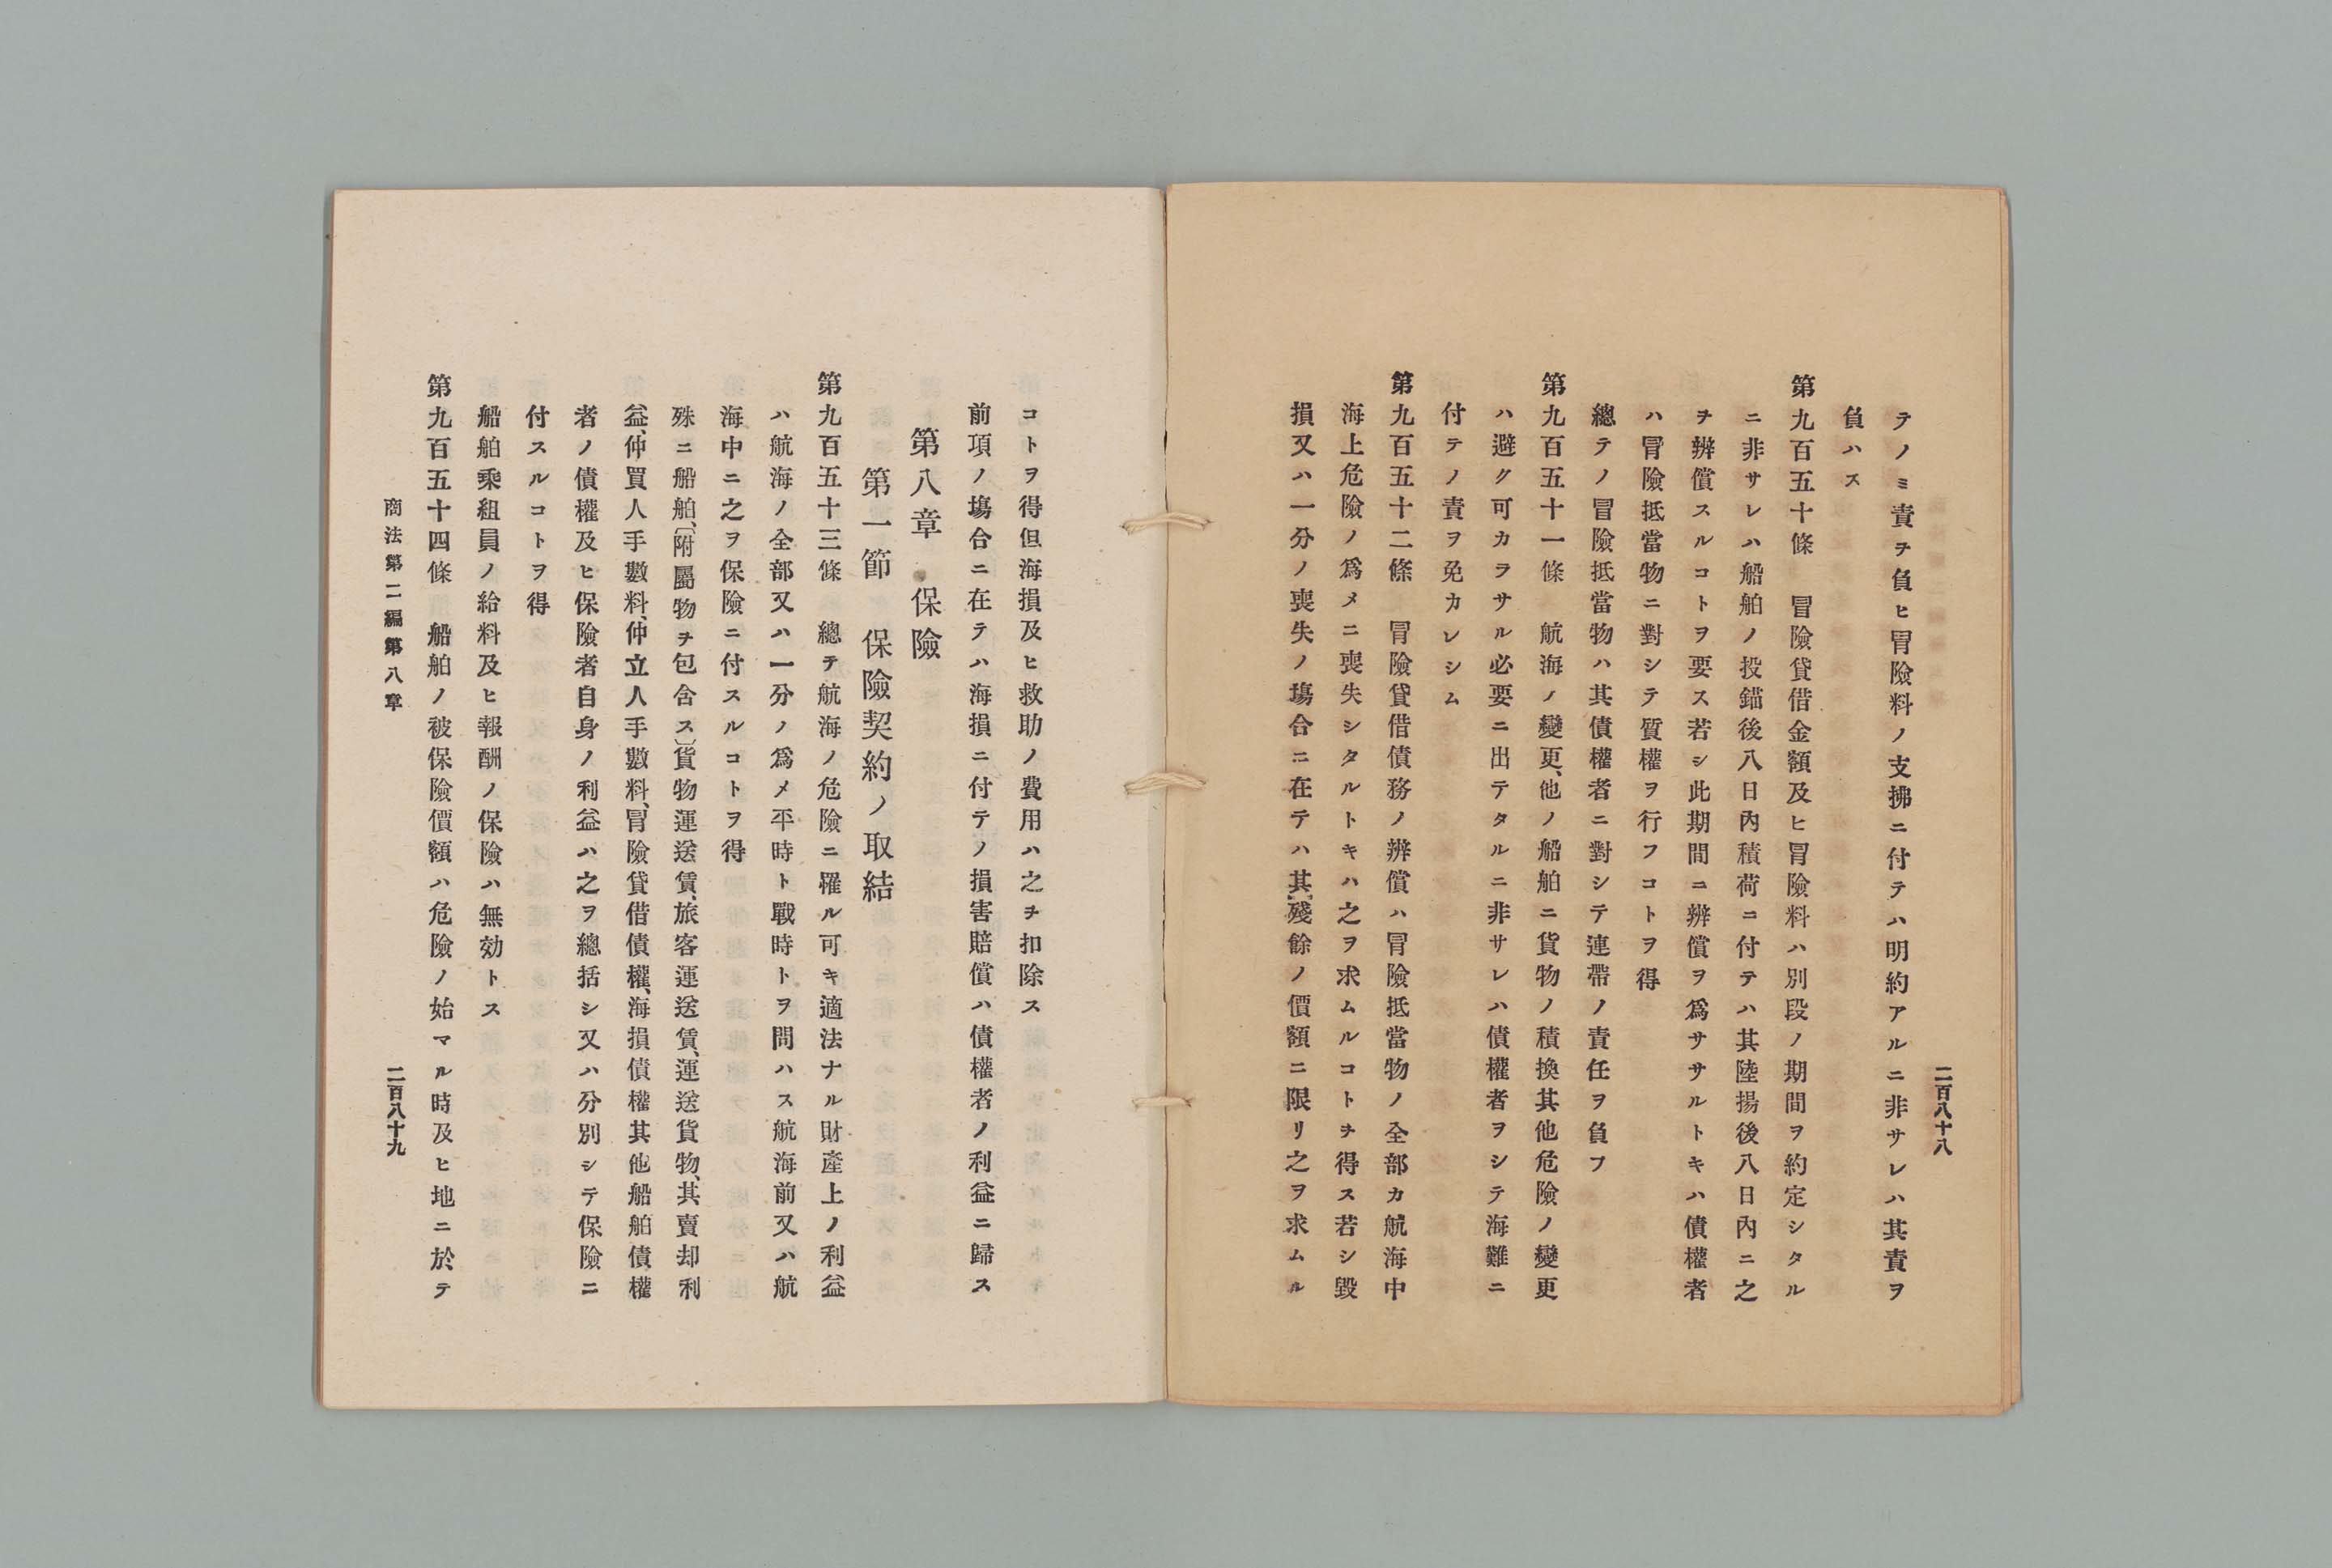 二百八十八
テノミ責ヲ負ヒ冒險料ノ支拂ニ付テハ明約アルニ非サレハ其責ヲ
負ハス
第九百五十條　冒險貸借金額及ヒ冒險料ハ別段ノ期間ヲ約定シタル
ニ非サレハ船舶ノ投錨後八日內積荷ニ付テハ其陸揚後八日內ニ之
ヲ辨償スルコトヲ要ス若シ此期間ニ辨償ヲ爲サヽルトキハ債權者
ハ冒險抵當物ニ對シテ質權ヲ行フコトヲ得
總テノ冒險抵當物ハ其債權者ニ對シテ連帶ノ責任ヲ負フ
第九百五十一條　航海ノ變更、他ノ船舶ニ貨物ノ積換其他危險ノ變更
ハ避ク可カラサル必要ニ出テタルニ非サレハ債權者ヲシテ海難ニ
付テノ責ヲ免カレシム
第九百五十二條　冒險貸借債務ノ辨償ハ冒險抵當物ノ全部カ航海中
海上危險ノ爲メニ喪失シタルトキハ之ヲ求ムルコトヲ得ス若シ毀
損又ハ一分ノ喪失ノ塲合ニ在テハ其殘餘ノ價額ニ限リ之ヲ求ムル
コトヲ得但海損及ヒ救助ノ費用ハ之ヲ扣除ス
前項ノ塲合ニ在テハ海損ニ付テノ損害賠償ハ債權者ノ利益ニ歸ス
第八章　保險
第一節　保險契約ノ取結
第九百五十三條　總テ航海ノ危險ニ罹ル可キ適法ナル財產上ノ利益
ハ航海ノ全部又ハ一分ノ爲メ平時ト戰時トヲ問ハス航海前又ハ航
海中ニ之ヲ保險ニ付スルコトヲ得
殊ニ船舶、〔附屬物ヲ包含ス〕貨物運送賃、旅客運送賃、運送貨物、其賣却利
益、仲買人手數料、仲立人手數料、冒險貸借債權、海損債權其他船舶債權
者ノ債權及ヒ保險者自身ノ利益ハ之ヲ總括シ又ハ分別シテ保險ニ
付スルコトヲ得
船舶乘組員ノ給料及ヒ報酬ノ保險ハ無効トス
第九百五十四條　船舶ノ被保險價額ハ危險ノ始マル時及ヒ地ニ於テ
商法第二編第八章
二百八十九